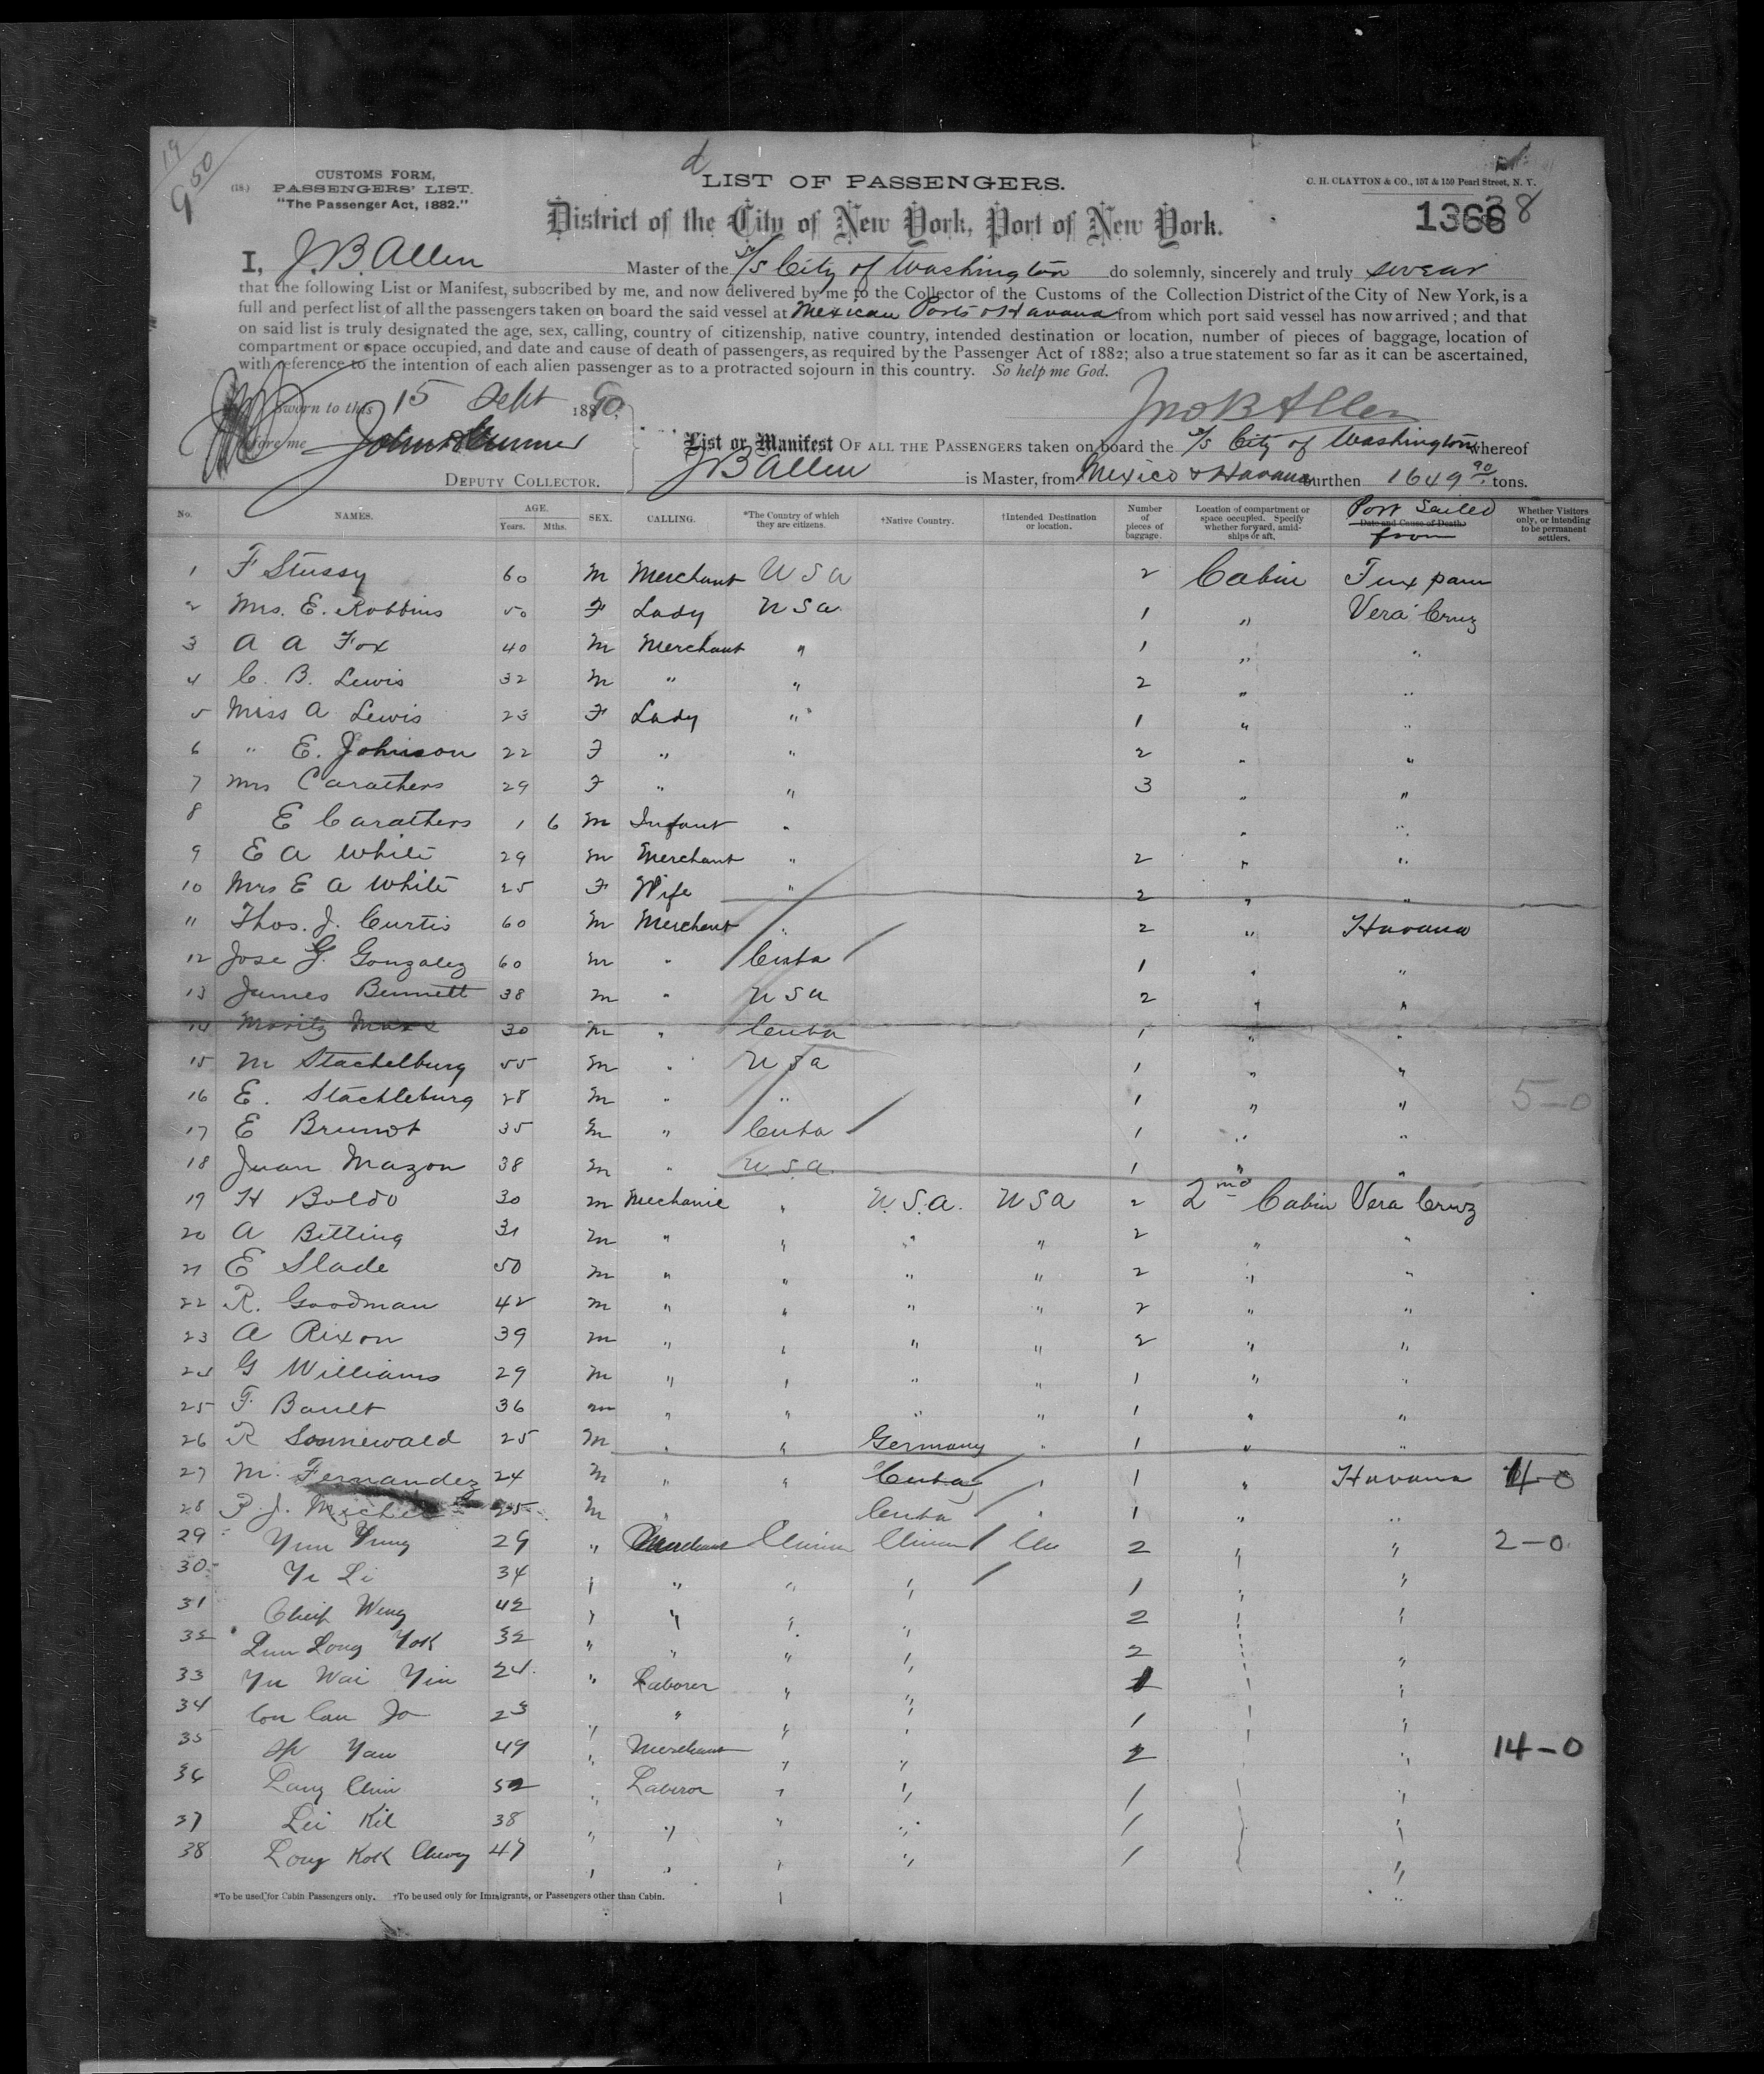 19
950
CUSTOMS FORM,
(18.) PASSENGERS' LIST.
"The Passenger Act, 1882."
d
LIST OF PASSENGERS.
C. H. CLAYTON & CO., 157 & 159 Pearl Street, N. Y.
District of the City of New York, Port of New York.
I, J. B. Allen Master of the S/S City of Washington do solemnly, sincerely and truly swear
that the following List or Manifest, subscribed by me, and now delivered by me to the Collector of the Customs of the Collection District of the City of New York, is a
full and perfect list of all the passengers taken on board the said vessel at Mexican Ports & Havana from which port said vessel has now arrived; and that
on said list is truly designated the age, sex, calling, country of citizenship, native country, intended destination or location, number of pieces of baggage, location of
compartment or space occupied, and date and cause of death of passengers, as required by the Passenger Act of 1882; also a true statement so far as it can be ascertained,
with reference to the intention of each alien passenger as to a protracted sojourn in this country. So help me God.
Sworn to this 15 Sept 1890,
Jno B Allen
before me
List or Manifest OF ALL THE PASSENGERS taken on board the S/S City of Washington whereof
DEPUTY COLLECTOR.
J B Allen is Master, from Mexico & Havana burthen 1649 90 tons.
No. NAMES. AGE. Years. Mths. SEX. CALLING. *The Country of which they are citizens. †Native Country. †Intended Destination or location. Number of pieces of baggage. Location of compartment or space occupied. Specify whether forward, amidships or aft. Date and Cause of Death. Port Sailed from Whether Visitors only, or intending to be permanent settlers.
1 F Stussy 60 M Merchant USA 2 Cabin Tuxpam
2 Mrs. E. Robbins 50 F Lady USA 1 " Vera Cruz
3 A A Fox 40 M Merchant " 1 " "
4 C. B. Lewis 32 M " " 2 " "
5 Miss A Lewis 23 F Lady " 1 " "
6 " E. Johnson 22 F " " 2 " "
7 Mrs Carathers 29 F " " 3 " "
8 E Carathers 1 6 M Infant " " "
9 E A White 29 M Merchant " 2 " "
10 Mrs E A White 25 F Wife " 2 " "
11 Thos. J. Curtis 60 M Merchant " 2 " Havana
12 Jose G. Gonzalez 60 M " Cuba 1 " "
13 James Bennett 38 M " USA 2 " "
14 Moritz Marx 30 M " Cuba 1 " "
15 M Stachelburg 55 M " USA 1 " "
16 E. Stachleburg 28 M " " 1 " " 5-0
17 E Brunot 35 M " Cuba 1 " "
18 Juan Mazon 38 M " U.S.A. 1 " "
19 H Boldo 30 M Mechanic " U.S.A. USA 2 2nd Cabin Vera Cruz
20 A Bitting 31 M " " " " 2 " "
21 E Slade 50 M " " " " 2 " "
22 R. Goodman 42 M " " " " 2 " "
23 A Rixon 39 M " " " " 2 " "
24 G Williams 29 M " " " " 1 " "
25 F. Bault 36 M " " " " 1 " "
26 R Sonnewald 25 M " " Germany " 1 " "
27 M. Fernandez 24 M " " Cuba " 1 " Havana
28 P. J. 25 M " Cuba " 1 " "
29 Yun Yung 29 " Merchant 2 " " 2-0
30 Ye Li 34 " " " " 1 " "
31 Wing 42 " " " " 2 " "
32 Lun Long Yok 32 " " " " 2 " "
33 Yu Wai Yin 24 " Laborer " " 1 " "
34 Con Can Jo 23 " " " " 1 " "
35 Yau 49 " Merchant " " 2 " " 14-0
36 Lang Chin 52 " Laborer " " 1 " "
37 Lei Kil 38 " " " " 1 " "
38 Long Kok Chung 47 " " " " 1 " "
*To be used for Cabin Passengers only. †To be used only for Immigrants, or Passengers other than Cabin.